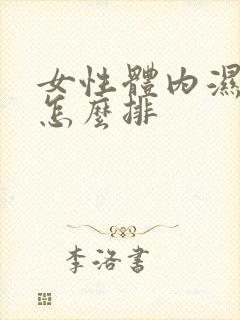 女性體內濕
怎麼排
李洛書